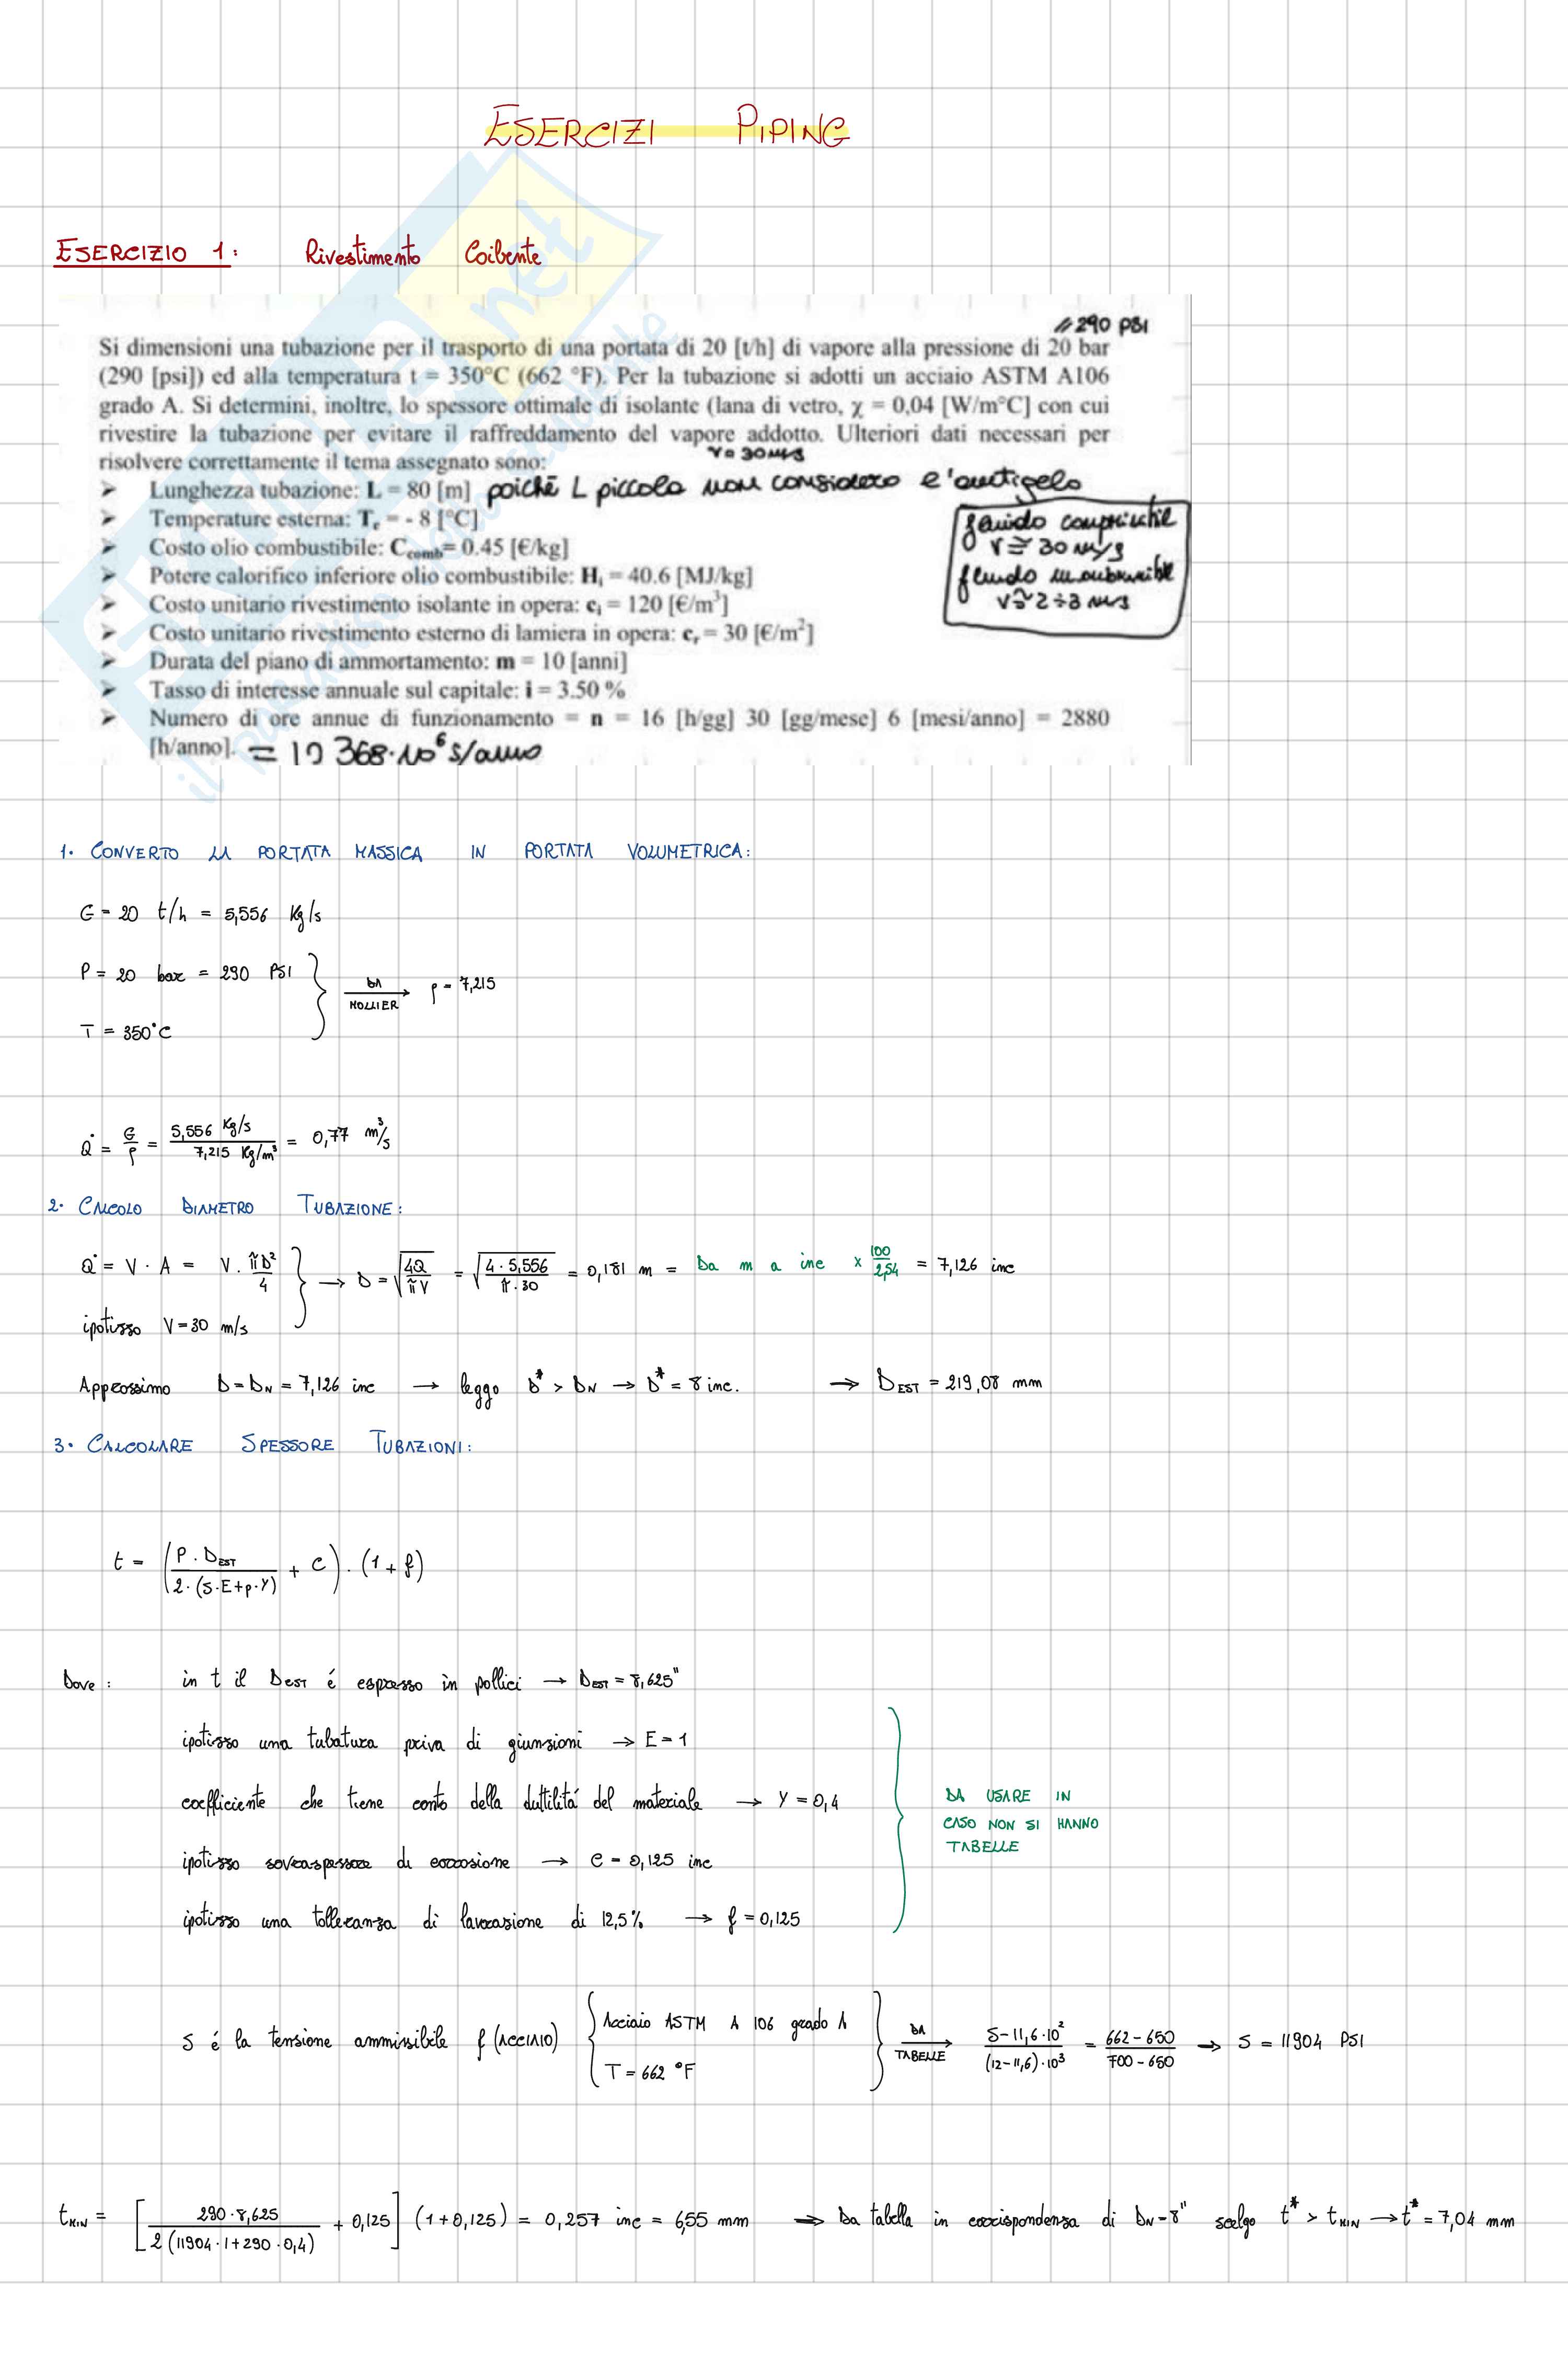 ESERCIZI PIPING
ESERCIZIO 1: Rivestimento Coibente
// 290 PSI
Si dimensioni una tubazione per il trasporto di una portata di 20 [t/h] di vapore alla pressione di 20 bar
(290 [psi]) ed alla temperatura t = 350°C (662 °F). Per la tubazione si adotti un acciaio ASTM A106
grado A. Si determini, inoltre, lo spessore ottimale di isolante (lana di vetro, χ = 0,04 [W/m°C] con cui
rivestire la tubazione per evitare il raffreddamento del vapore addotto. Ulteriori dati necessari per
risolvere correttamente il tema assegnato sono:
v = 30 m/s
➤ Lunghezza tubazione: L = 80 [m] poiché L piccola non considero l'antigelo
➤ Temperature esterna: Te = - 8 [°C]
➤ Costo olio combustibile: Ccomb= 0.45 [€/kg]
➤ Potere calorifico inferiore olio combustibile: Hi = 40.6 [MJ/kg]
➤ Costo unitario rivestimento isolante in opera: ci = 120 [€/m³]
➤ Costo unitario rivestimento esterno di lamiera in opera: cr = 30 [€/m²]
➤ Durata del piano di ammortamento: m = 10 [anni]
➤ Tasso di interesse annuale sul capitale: i = 3.50 %
➤ Numero di ore annue di funzionamento = n = 16 [h/gg] 30 [gg/mese] 6 [mesi/anno] = 2880
[h/anno]. = 10 368·10⁶ s/anno
fluido comprimibile
v ≅ 30 m/s
fluido
v ≅ 2÷3 m/s
1. CONVERTO LA PORTATA MASSICA IN PORTATA VOLUMETRICA:
G = 20 t/h = 5,556 Kg/s
P = 20 bar = 290 PSI
T = 350°C
DA MOLLIER → ρ = 7,215
Q̇ = G/ρ = 5,556 Kg/s / 7,215 Kg/m³ = 0,77 m³/s
2. CALCOLO DIAMETRO TUBAZIONE:
Q̇ = V · A = V · πD²/4 → D = √(4Q/πV) = √(4 · 5,556/π · 30) = 0,181 m = Da m a inc × 100/2,54 = 7,126 inc
ipotizzo V = 30 m/s
Approssimo D = DN = 7,126 inc → leggo D* > DN → D* = 8 inc. → DEST = 219,08 mm
3. CALCOLARE SPESSORE TUBAZIONI:
t = (P · DEST / 2·(S·E+p·Y) + C) · (1 + f)
Dove: in t il DEST é espresso in pollici → DEST = 8,625"
ipotizzo una tubatura priva di giunzioni → E = 1
coefficiente che tiene conto della duttilitá del materiale → Y = 0,4
ipotizzo sovraspessore di corrosione → C = 0,125 inc
ipotizzo una tolleranza di lavorazione di 12,5% → f = 0,125
DA USARE IN
CASO NON SI HANNO
TABELLE
S é la tensione ammissibile f (ACCIAIO) { Acciaio ASTM A 106 grado A
T = 662 °F } DA TABELLE → S-11,6·10²/(12-11,6)·10³ = 662-650/700-650 → S = 11904 PSI
tMIN = [290·8,625 / 2(11904·1+290·0,4) + 0,125] (1+0,125) = 0,257 inc = 6,55 mm ⇒ Da tabella in corrispondenza di DN=8" scelgo t* > tMIN → t* = 7,04 mm